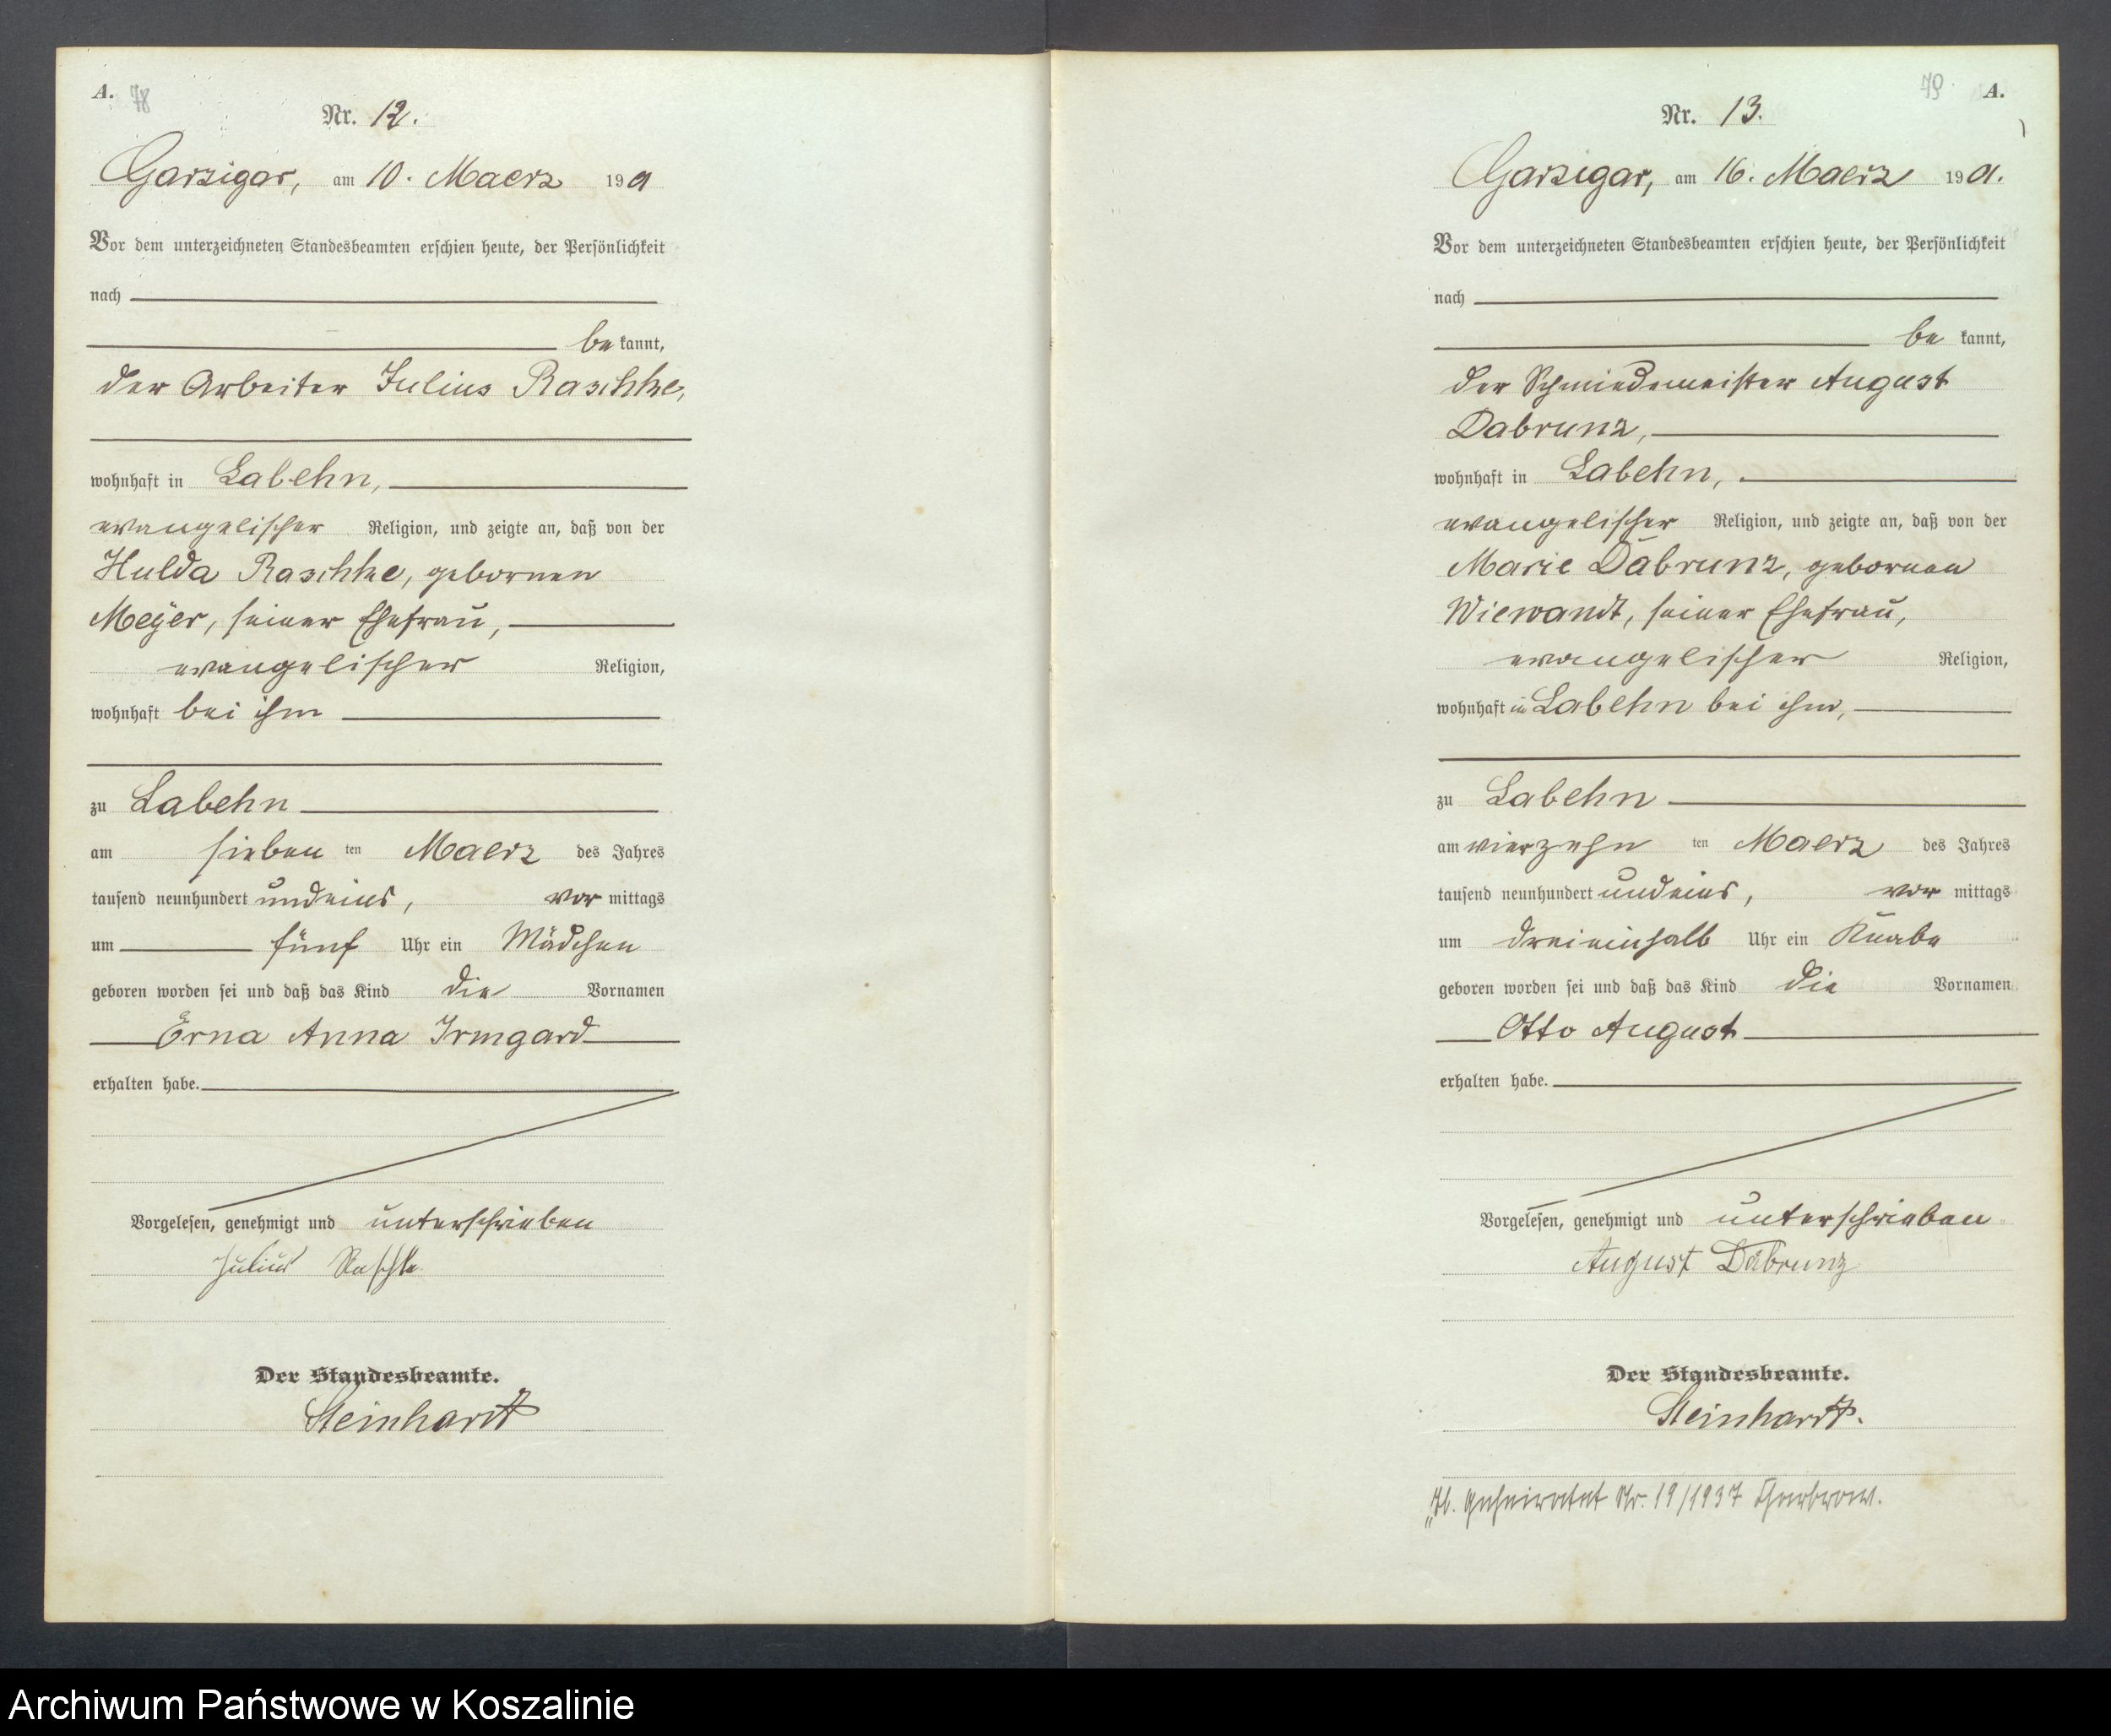 A. 78
Nr. 12.
Garzigar, am 10. Maerz 1901
Vor dem unterzeichneten Standesbeamten erschien heute, der Persönlichkeit
nach
be kannt,
der Arbeiter Julius Raschke,
wohnhaft in Labehn,
evangelischer Religion, und zeigte an, daß von der
Hulda Raschke, gebornen
Meyer, seiner Ehefrau,
evangelischer Religion,
wohnhaft bei ihm
zu Labehn
am sieben ten Maerz des Jahres
tausend neunhundert undeins, vor mittags
um fünf Uhr ein Mädchen
geboren worden sei und daß das Kind die Vornamen
Erna Anna Irmgard
erhalten habe.
Vorgelesen, genehmigt und unterschrieben
Julius Raschke
Der Standesbeamte.
Steinhardt
79 A.
Nr. 13.
Garzigar, am 16. Maerz 1901.
Vor dem unterzeichneten Standesbeamten erschien heute, der Persönlichkeit
nach
be kannt,
der Schmiedemeister August
Dabrunz,
wohnhaft in Labehn,
evangelischer Religion, und zeigte an, daß von der
Marie Dabrunz, gebornen
Wiewandt, seiner Ehefrau,
evangelischer Religion,
wohnhaft in Labehn bei ihm,
zu Labehn
am vierzehn ten Maerz des Jahres
tausend neunhundert undeins, vor mittags
um dreieinhalb Uhr ein Knabe
geboren worden sei und daß das Kind die Vornamen
Otto August
erhalten habe.
Vorgelesen, genehmigt und unterschrieben
August Dabrunz
Der Standesbeamte.
Steinhardt.
geheiratet Nr. 19/1937 Charbrow.
Archiwum Państwowe w Koszalinie